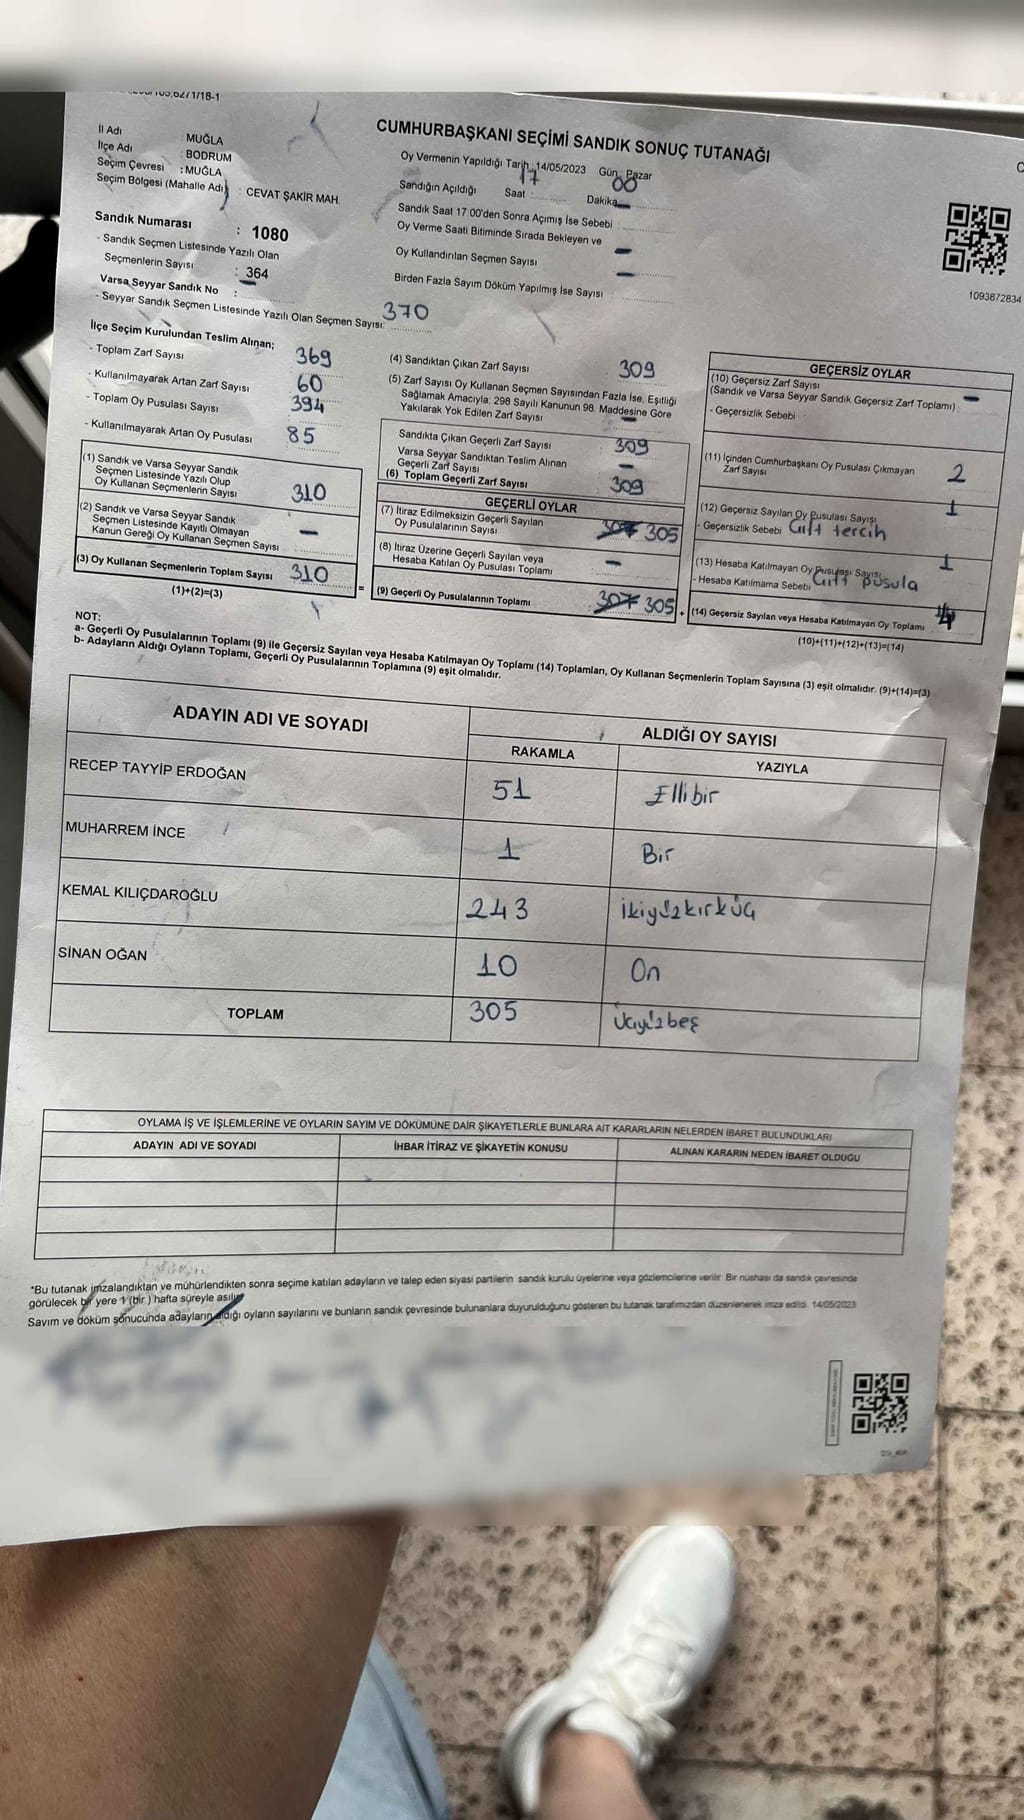 CUMHURBAŞKANI SEÇİMİ SANDIK SONUÇ TUTANAĞI
İl Adı : MUĞLA
İlçe Adı : BODRUM
Seçim Çevresi : MUĞLA
Seçim Bölgesi (Mahalle Adı) : CEVAT ŞAKİR MAH.
Sandık Numarası : 1080
- Sandık Seçmen Listesinde Yazılı Olan
Seçmenlerin Sayısı : 364
Varsa Seyyar Sandık No : -
- Seyyar Sandık Seçmen Listesinde Yazılı Olan Seçmen Sayısı:
370
Oy Vermenin Yapıldığı Tarih : 14/05/2023 Gün : Pazar
Sandığın Açıldığı Saat : 17 Dakika 00
Sandık Saat 17.00'den Sonra Açımış İse Sebebi : -
Oy Verme Saati Bitiminde Sırada Bekleyen ve
Oy Kullandırılan Seçmen Sayısı -
Birden Fazla Sayım Döküm Yapılmış İse Sayısı -
1093872834
İlçe Seçim Kurulundan Teslim Alınan;
- Toplam Zarf Sayısı 369
- Kullanılmayarak Artan Zarf Sayısı 60
- Toplam Oy Pusulası Sayısı 394
- Kullanılmayarak Artan Oy Pusulası 85
(1) Sandık ve Varsa Seyyar Sandık
Seçmen Listesinde Yazılı Olup
Oy Kullanan Seçmenlerin Sayısı 310
(2) Sandık ve Varsa Seyyar Sandık
Seçmen Listesinde Kayıtlı Olmayan
Kanun Gereği Oy Kullanan Seçmen Sayısı -
(3) Oy Kullanan Seçmenlerin Toplam Sayısı 310
(1)+(2)=(3)
(4) Sandıktan Çıkan Zarf Sayısı 309
(5) Zarf Sayısı Oy Kullanan Seçmen Sayısından Fazla İse, Eşitliği
Sağlamak Amacıyla, 298 Sayılı Kanunun 98. Maddesine Göre
Yakılarak Yok Edilen Zarf Sayısı -
Sandıkta Çıkan Geçerli Zarf Sayısı 309
Varsa Seyyar Sandıktan Teslim Alınan
Geçerli Zarf Sayısı -
(6) Toplam Geçerli Zarf Sayısı 309
GEÇERLİ OYLAR
(7) İtiraz Edilmeksizin Geçerli Sayılan
Oy Pusulalarının Sayısı 307 305
(8) İtiraz Üzerine Geçerli Sayılan veya
Hesaba Katılan Oy Pusulası Toplamı -
= (9) Geçerli Oy Pusulalarının Toplamı 307 305 +
GEÇERSİZ OYLAR
(10) Geçersiz Zarf Sayısı
(Sandık ve Varsa Seyyar Sandık Geçersiz Zarf Toplamı) -
- Geçersizlik Sebebi
(11) İçinden Cumhurbaşkanı Oy Pusulası Çıkmayan
Zarf Sayısı 2
(12) Geçersiz Sayılan Oy Pusulası Sayısı 1
- Geçersizlik Sebebi Çift tercih
(13) Hesaba Katılmayan Oy Pusulası Sayısı 1
- Hesaba Katılmama Sebebi Çift pusula
(14) Geçersiz Sayılan veya Hesaba Katılmayan Oy Toplamı 4
(10)+(11)+(12)+(13)=(14)
NOT:
a- Geçerli Oy Pusulalarının Toplamı (9) ile Geçersiz Sayılan veya Hesaba Katılmayan Oy Toplamı (14) Toplamları, Oy Kullanan Seçmenlerin Toplam Sayısına (3) eşit olmalıdır. (9)+(14)=(3)
b- Adayların Aldığı Oyların Toplamı, Geçerli Oy Pusulalarının Toplamına (9) eşit olmalıdır.
ADAYIN ADI VE SOYADI ALDIĞI OY SAYISI
RAKAMLA YAZIYLA
RECEP TAYYİP ERDOĞAN 51 Ellibir
MUHARREM İNCE 1 Bir
KEMAL KILIÇDAROĞLU 243 İkiyüzkırküç
SİNAN OĞAN 10 On
TOPLAM 305 Üçyüzbeş
OYLAMA İŞ VE İŞLEMLERİNE VE OYLARIN SAYIM VE DÖKÜMÜNE DAİR ŞİKAYETLERLE BUNLARA AİT KARARLARIN NELERDEN İBARET BULUNDUKLARI
ADAYIN ADI VE SOYADI İHBAR İTİRAZ VE ŞİKAYETİN KONUSU ALINAN KARARIN NEDEN İBARET OLDUĞU
*Bu tutanak imzalandıktan ve mühürlendikten sonra seçime katılan adayların ve talep eden siyasi partilerin sandık kurulu üyelerine veya gözlemcilerine verilir. Bir nüshası da sandık çevresinde
görülecek bir yere 1 (bir ) hafta süreyle asılır
Sayım ve döküm sonucunda adayların aldığı oyların sayılarını ve bunların sandık çevresinde bulunanlara duyurulduğunu gösteren bu tutanak tarafımızdan düzenlenerek imza edildi. 14/05/2023